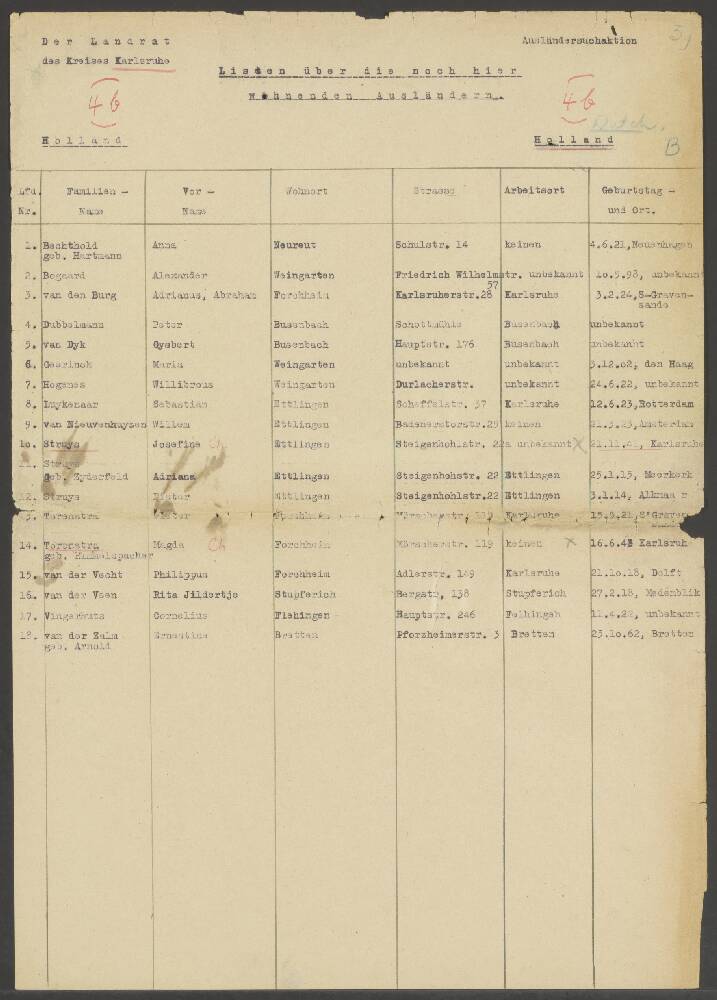 Der Landrat
des Kreises Karlsruhe
Ausländersuchaktion
Listen über die noch hier
wohnenden Ausländern.
4b
4b
Dutch.
B
Holland
Holland
Lfd. Nr. Familien - Name Vor - Name Wohnort Strasse Arbeitsort Geburtstag - und Ort.
1. Bechthold geb. Hartmann Anna Neureut Schulstr. 14 keinen 4.6.21, Neuenhagen
2. Bogaard Alexander Weingarten Friedrich Wilhelmstr. 57 unbekannt 10.5.98, unbekannt
3. van den Burg Adrianus, Abraham Forchheim Karlsruherstr. 28 Karlsruhe 3.2.24, S-Gravensande
4. Dubbelmann Peter Busenbach Schottmühle Busenbach unbekannt
5. van Dyk Gysbert Busenbach Hauptstr. 176 Busenbach unbekannt
6. Maria Weingarten unbekannt unbekannt 3.12.02, den Haag
7. Hogenes Willibrous Weingarten Durlacherstr. unbekannt 24.6.22, unbekannt
8. Luykenaar Sebastian Ettlingen Scheffelstr. 37 Karlsruhe 12.6.23, Rotterdam
9. van Nieuvenhuyzen Willem Ettlingen keinen 21.3.23, Amsterdam
10. Struys Josefine Ch Ettlingen Steigenhohlstr. 22a unbekannt x 21.11.41, Karlsruhe
11. Struys geb. Zyderfeld Adriana Ettlingen Steigenhohstr. 22 Ettlingen 25.1.15, Meerkerk
12. Struys Pieter Ettlingen Steigenhohlstr. 22 Ettlingen 3.1.14, Alkmaar
13. Toronstra Forchheim 119 Karlsruhe 15.9.21, S'Graven
14. Toronstra geb. Himmelspacher Magda Ch Forchheim 119 keinen x 16.6.41 Karlsruhe
15. van der Vecht Philippus Forchheim Adlerstr. 149 Karlsruhe 21.10.18, Delft
16. van der Veen Rita Jildertje Stupferich Bergstr, 138 Stupferich 27.2.18, Medenblik
17. Vingerhuts Cornelius Flehingen Hauptstr. 246 Felhingen 11.4.22, unbekannt
18. van der Zalm geb. Arnold Ernestine Bretten Pforzheimerstr. 3 Bretten 23.10.62, Bretten